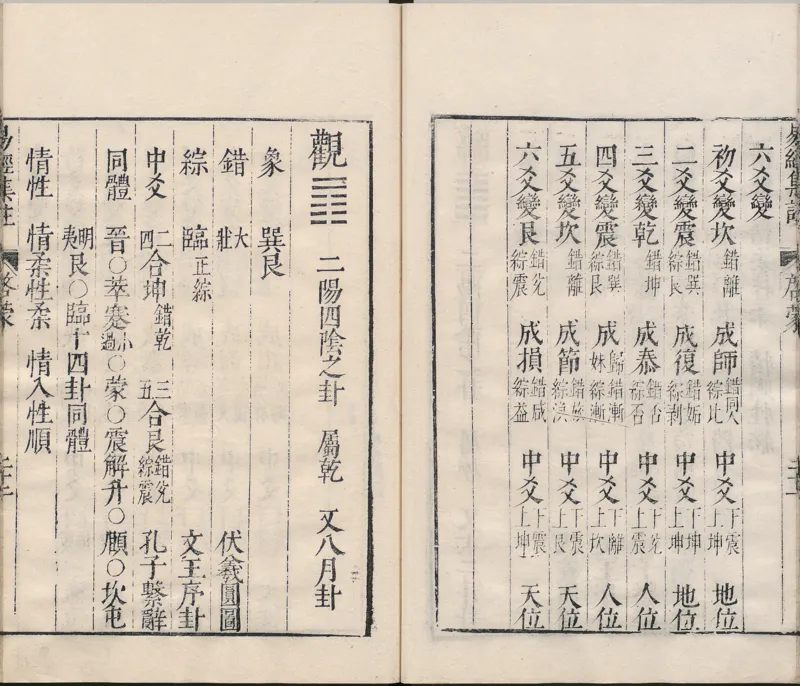 六爻變
初爻變坎 錯離 成師 錯同人綜比 中爻 下震上坤 地位
二爻變震 錯巽綜艮 成復 錯姤綜剥 中爻 下坤上坤 地位
三爻變乾 錯坤 成泰 錯否綜否 中爻 下兌上震 人位
四爻變震 錯巽綜艮 成歸妹 錯漸綜漸 中爻 下離上坎 人位
五爻變坎 錯離 成節 錯旅綜渙 中爻 下震上艮 天位
六爻變艮 錯兌綜震 成損 錯咸綜益 中爻 下震上坤 天位
觀 ䷓ 二陽四陰之卦 屬乾 又八月卦
象 巽艮
錯 大壯 伏羲圓圖
綜 臨正綜 文王序卦
中爻 二四合坤錯乾 三五合艮錯兌綜震 孔子繫辭
同體 晉○萃蹇小過○蒙○震解升○頤○坎屯
明夷艮○臨十四卦同體
情性 情柔性柔 情入性順
易經集註 啓蒙